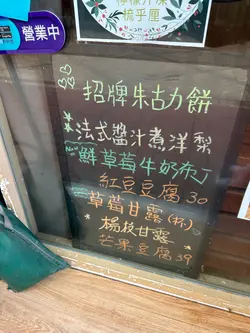 營業中
梳乎厘
招牌朱古力餅
法式醬汁煮洋梨
New 鮮草莓牛奶布丁
紅豆豆腐 30
草莓甘露(杯)
楊枝甘露
芒果豆腐 39